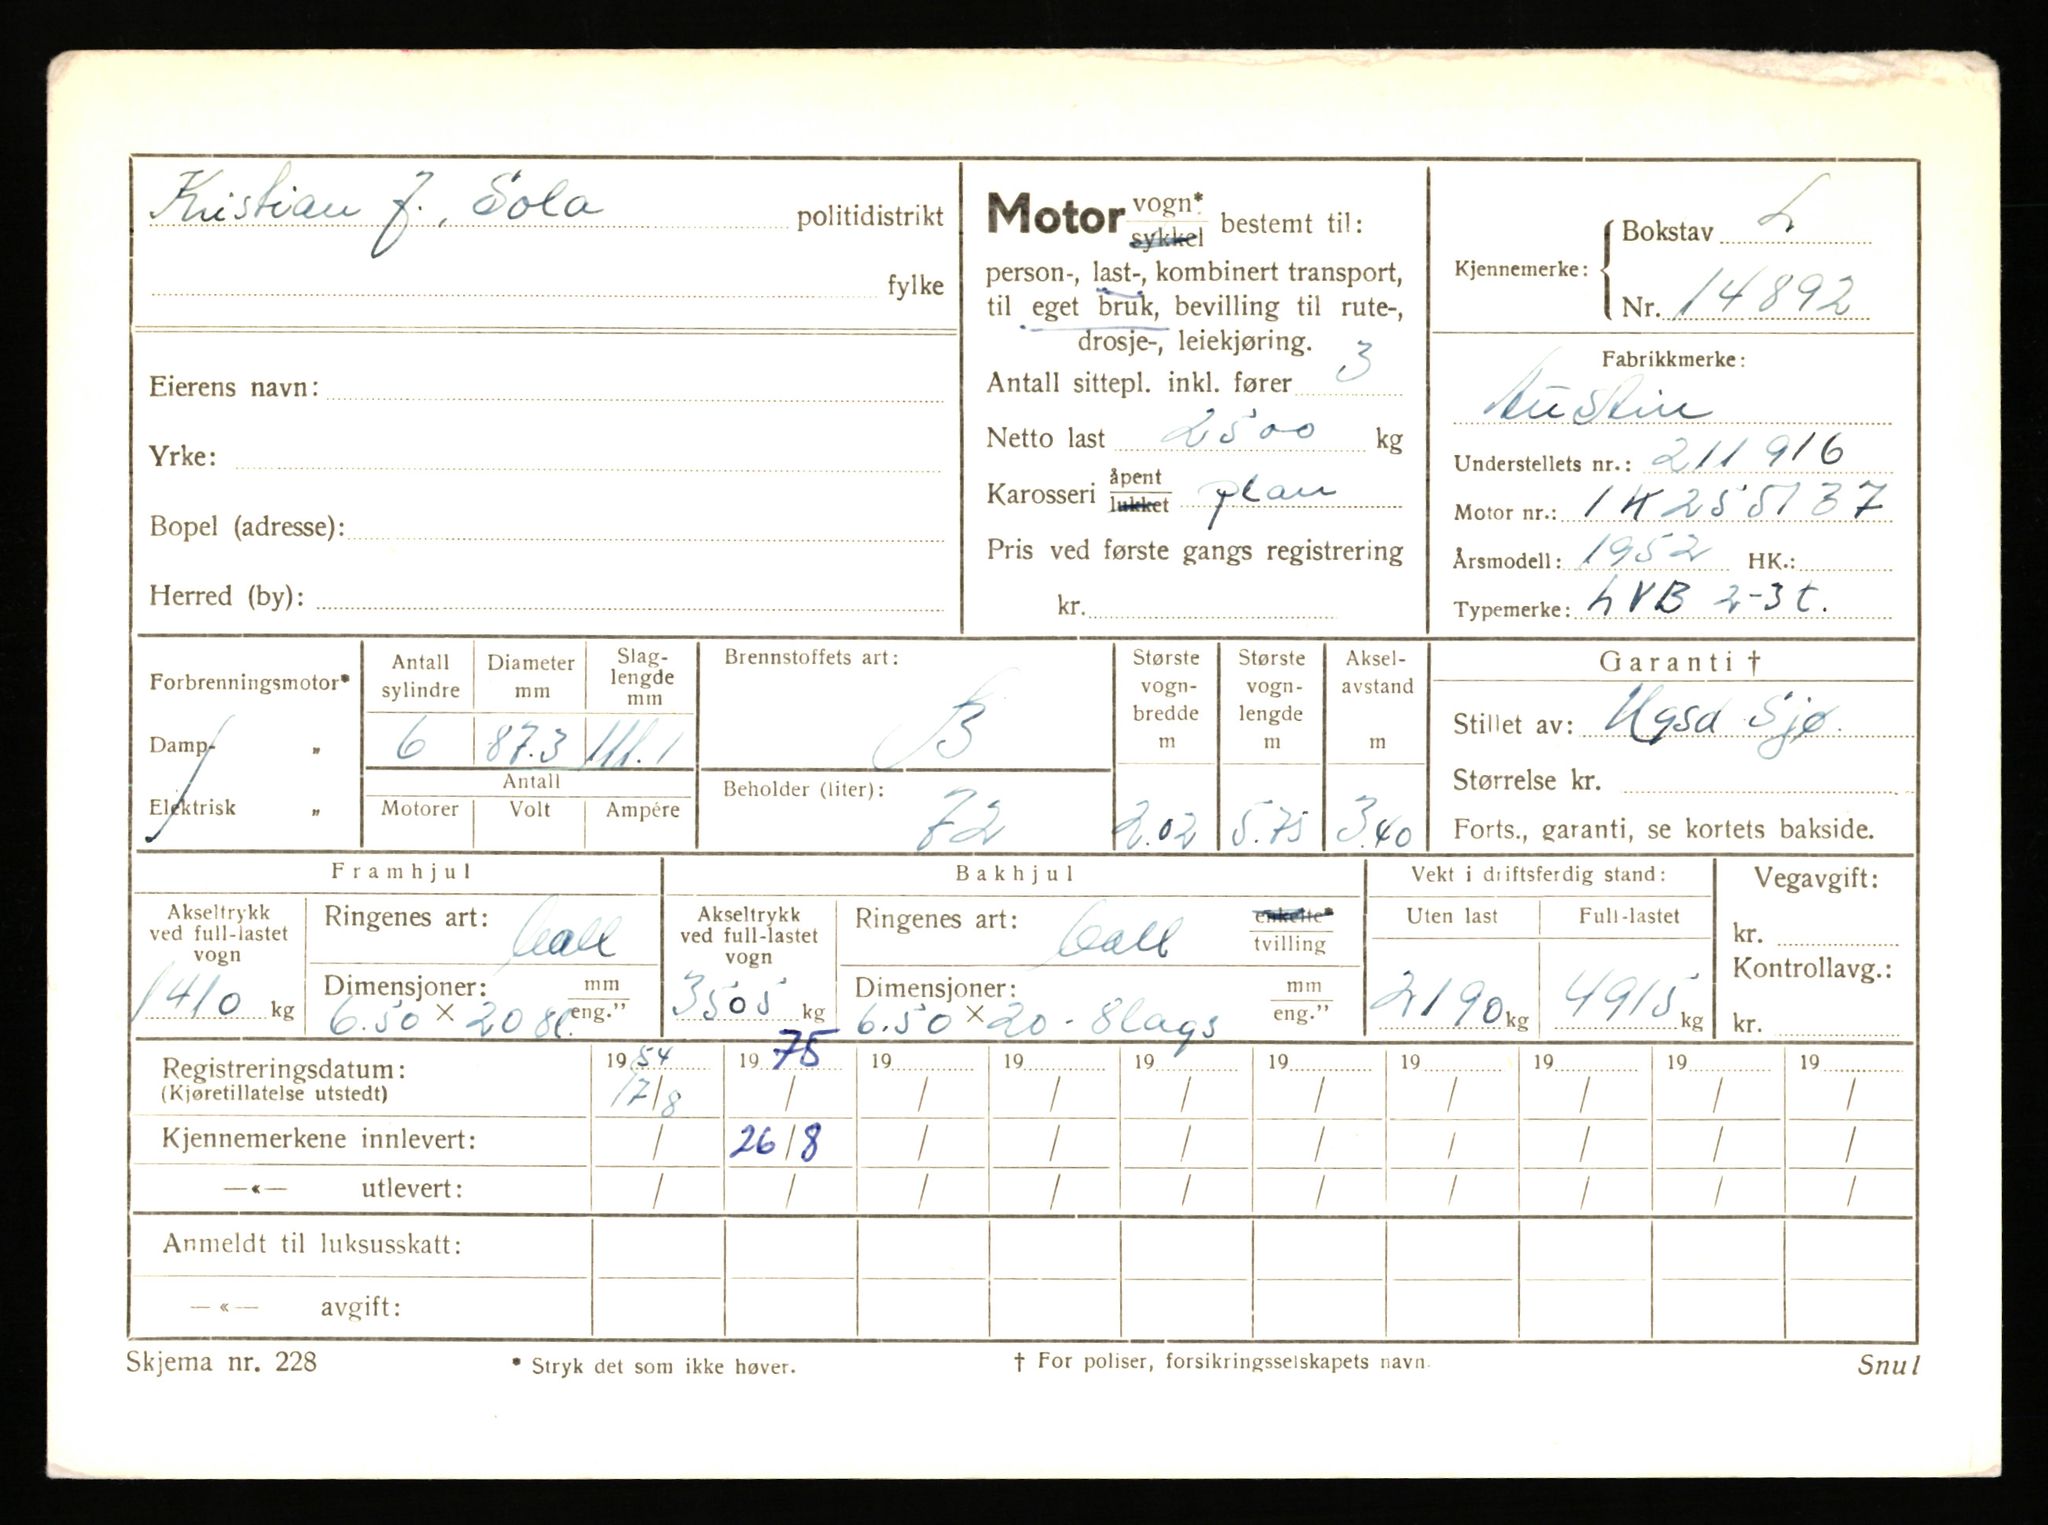 Kristian J., Sola politidistrikt
fylke
Eierens navn:
Yrke:
Bopel (adresse):
Herred (by):
Motor vogn* sykkel bestemt til:
person-, last-, kombinert transport,
til eget bruk, bevilling til rute-,
drosje-, leiekjøring.
Antall sittepl. inkl. fører 3
Netto last 2500 kg
Karosseri åpent lukket plan
Pris ved første gangs registrering
kr.
Kjennemerke: Bokstav L
Nr. 14892
Fabrikkmerke:
Austin
Understellets nr.: 211916
Motor nr.: 1K255137
Årsmodell: 1952 HK.:
Typemerke: LVB 2-3 t.
Forbrenningsmotor*
Damp- „
Elektrisk „
Antall sylindre 6
Diameter mm 87.3
Slag-lengde mm 111.1
Antall
Motorer Volt Ampére
Brennstoffets art: B
Beholder (liter): 72
Største vogn-bredde m 2.02
Største vogn-lengde m 5.75
Aksel-avstand m 3.40
Garanti †
Stillet av: Sjø.
Størrelse kr.
Forts., garanti, se kortets bakside.
Framhjul
Akseltrykk ved full-lastet vogn 1410 kg
Ringenes art:
Dimensjoner: mm eng."
6.50 × 20 8l.
Bakhjul
Akseltrykk ved full-lastet vogn 3505 kg
Ringenes art: enkelte* tvilling
Dimensjoner: mm eng."
6.50 × 20 - 8 lags
Vekt i driftsferdig stand:
Uten last 2190 kg
Full-lastet 4915 kg
Vegavgift:
kr.
Kontrollavg.:
kr.
Registreringsdatum: 1954 1975 19 19 19 19 19 19 19 19
(Kjøretillatelse utstedt) 17/8 / / / / / / / / /
Kjennemerkene innlevert: / 26/8 / / / / / / / /
—«— utlevert: / / / / / / / / / /
Anmeldt til luksusskatt:
—«— avgift:
Skjema nr. 228 * Stryk det som ikke høver. † For poliser, forsikringsselskapets navn. Snul